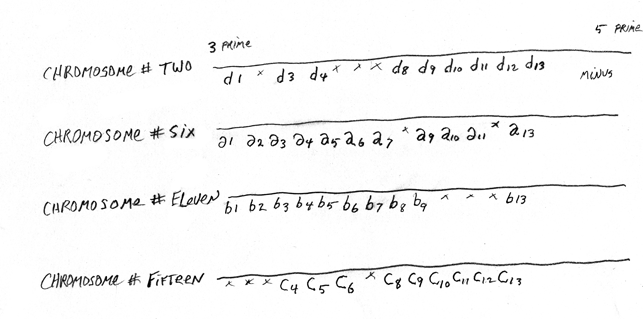 3 PRIME 5 PRIME
CHROMOSOME # TWO d1 x d3 d4 x x x d8 d9 d10 d11 d12 d13 MINUS
CHROMOSOME # SIX a1 a2 a3 a4 a5 a6 a7 x a9 a10 a11 x a13
CHROMOSOME # ELEVEN b1 b2 b3 b4 b5 b6 b7 b8 b9 x x x b13
CHROMOSOME # FIFTEEN x x x C4 C5 C6 x C8 C9 C10 C11 C12 C13